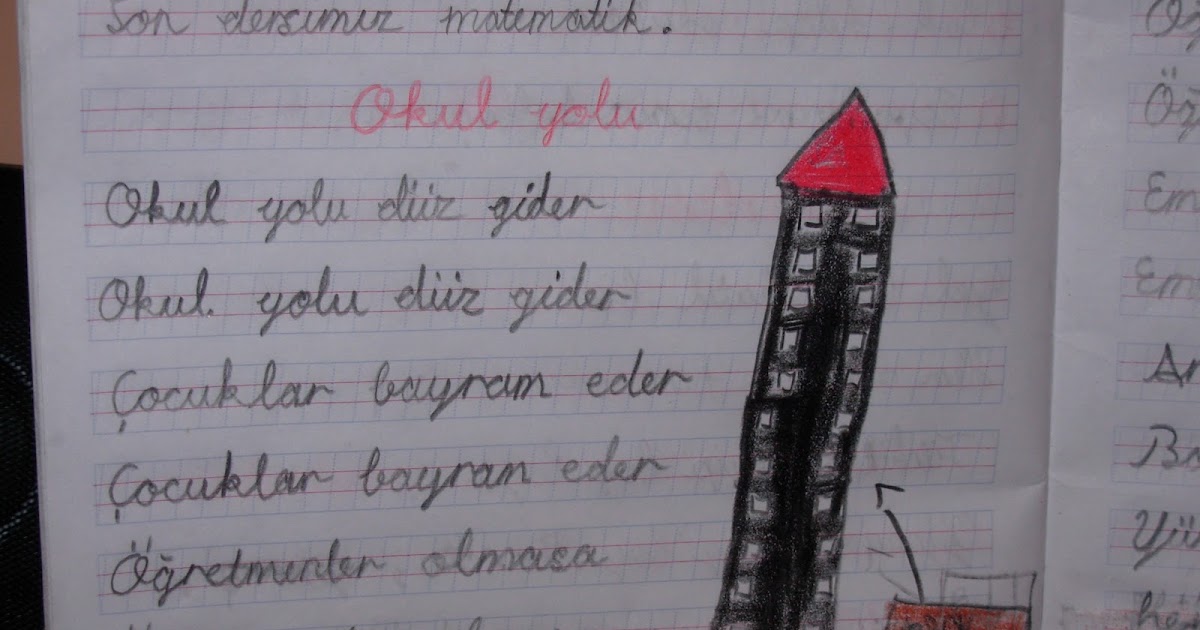 Son dersimiz matematik.
Okul yolu
Okul yolu düz gider
Okul. yolu düz gider
Çocuklar bayram eder
Çocuklar bayram eder
Öğretmenler olmasa